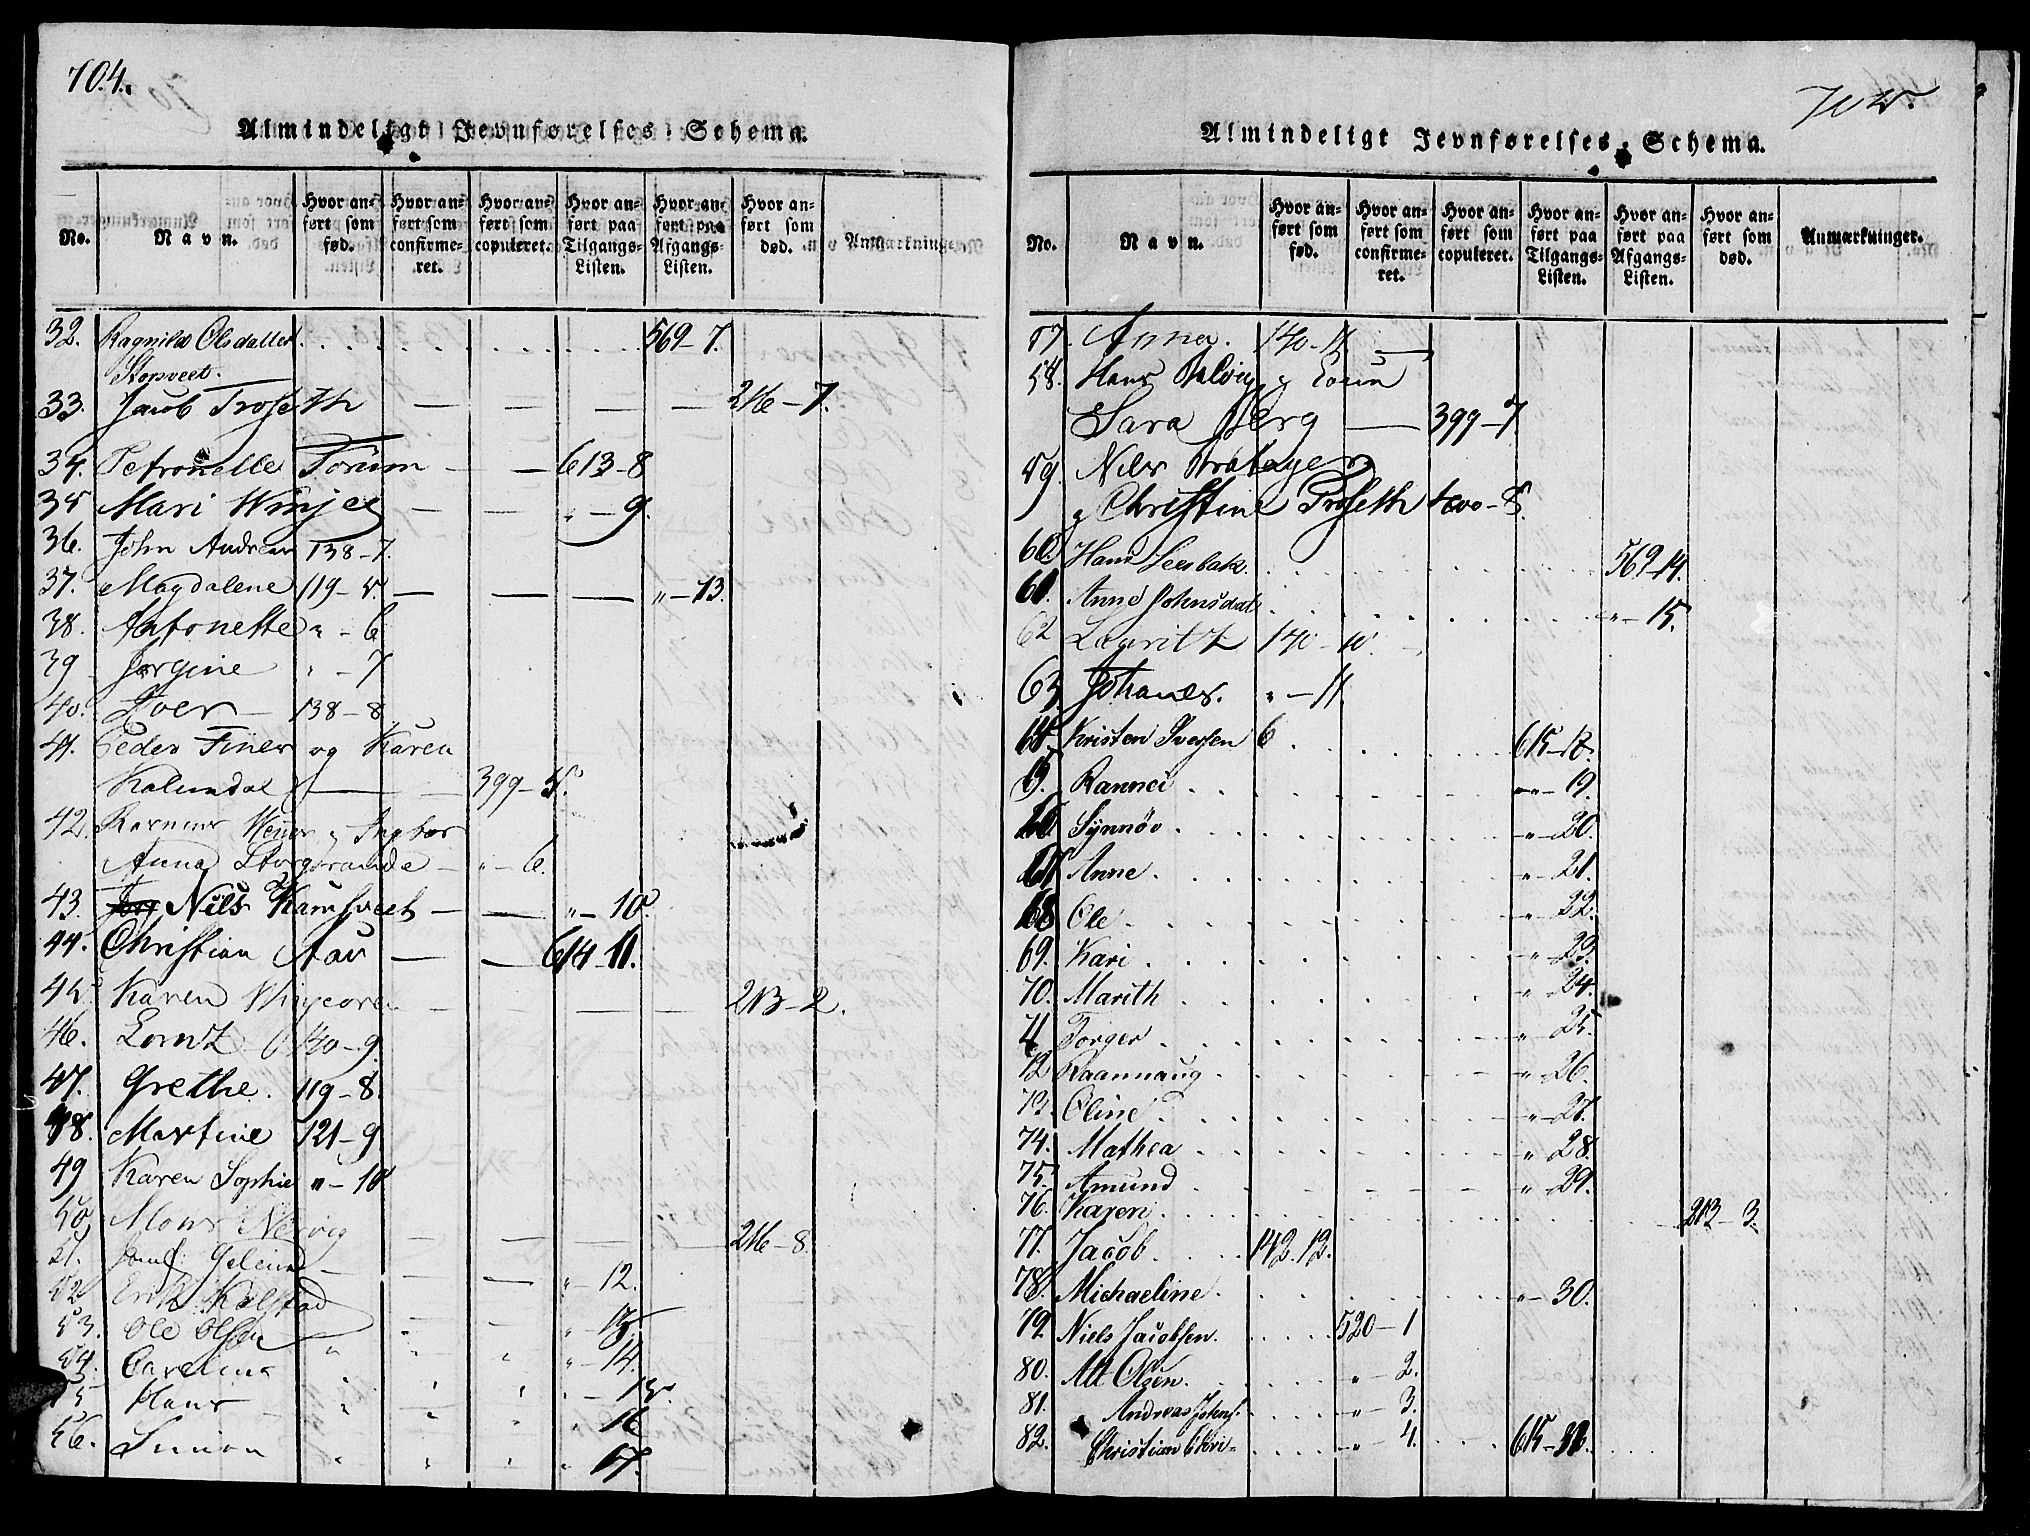 704.
Almindeligt Jevnførelses-Schema.
No. Navn. Hvor anført som fød. Hvor anført som confirmeret. Hvor anført som copuleret. Hvor anført paa Tilgangs-Listen. Hvor anført paa Afgangs-Listen. Hvor anført som død. Anmærkninger.
32. Ragnild Olsdatter 569-7.
Storsveet.
33. Jacob Troseth 216-7.
34. Petronelle Forum 613-8
35 Mari Winjes " - 9.
36. John Andreas 138-7.
37. Magdalene 119-5. " - 13.
38. Antonette " - 6
39 Jørgine " - 7
40. Iver 138-8
41. Peder Finer og Karen
Kalundal 399-5.
42. Rasmus Ingbor
Anna Storstrande " - 6.
43. Nils Kamsveet " - 10.
44. Christian Aar 614-11.
45. Karen 213-2.
46. Lorntz 140-9.
47. Grethe. 119-8.
48. Martine 121-9
49 Karen Sophie " - 10
50. Mons Nervig 216-8.
51. " - 12.
52 Erik Kolstad
53. Ole Olsen " - 13.
54. Carelina " - 14.
55 Hans " - 15.
56. Simon 16
" 17.
Almindeligt Jevnførelses-Schema.
No. Navn. Hvor anført som fød. Hvor anført som confirmeret. Hvor anført som copuleret. Hvor anført paa Tilgangs-Listen. Hvor anført paa Afgangs-Listen. Hvor anført som død. Anmærkninger.
57. Anna. 140-11.
58. Hans
Sara Berg 399-7
59. Niels
Christine Troseth 400-8.
60. Hans Leesbak. 569-14.
61. Anne Johnsdat " - 15.
62 Lauritz 140-10.
63 Johannes. " - 11.
64. Kristen Iversen 6 615-18.
65. Rannei " - 19.
66. Synnøv " - 20.
67 Anne " - 21.
68 Ole " - 22.
69. Kari " - 23.
70. Marith " - 24.
71 Torger " - 25.
72 Raannaug " - 26.
73. Oline " - 27.
74. Mathea " - 28.
75. Amund " - 29.
76. Karen 213-3.
77. Jacob 142. 12.
78. Michaeline " - 30.
79 Niels Jacobsen. 520-1
80. Olsen. " - 2.
81. Andreas Johns. " - 3.
82. Christian Chri- " - 4. 615-